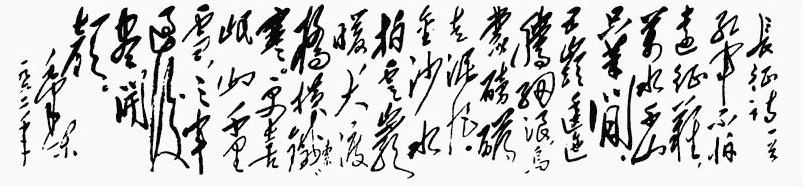 長征詩一首
紅軍不怕
遠征難,
萬水千山
只等閒。
五嶺逶迤
騰細浪,烏
蒙磅礴
走泥丸。
金沙水
拍雲崖
暖,大渡
橋橫鐵索
寒。更喜
岷山千里
雪,三軍
過後
盡開
顏。
毛澤東
一九六二年